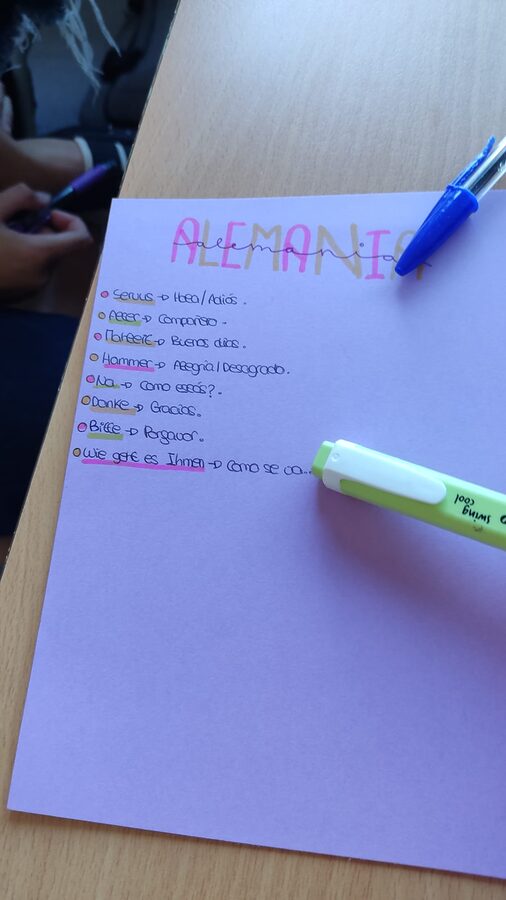 ALEMANIA
alemania
Servus → Hola/Adiós.
Alter → Compañero.
→ Buenos días.
Hammer → Alegria/Desagrado.
Na → Como estás?.
Danke → Gracias.
Bitte → Porfavor.
Wie geht es Ihnen → Como se va...
swing
cool